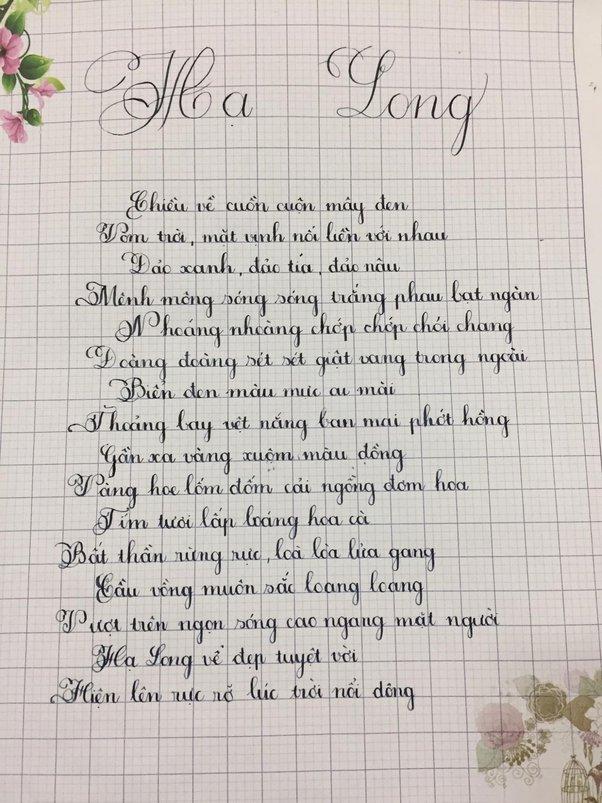 Hạ Long
Chiều về cuồn cuộn mây đen
Vòm trời, mặt vịnh nối liền với nhau
Đảo xanh, đảo tía, đảo nâu
Mênh mông sóng sóng trắng phau bạt ngàn
Nhoáng nhoàng chớp chớp chói chang
Đoàng đoàng sét sét giật vang trong ngoài
Biển đen màu mực ai mài
Thoảng bay vệt nắng ban mai phớt hồng
Gần xa vàng xuộm màu đồng
Vàng hoe lốm đốm cải ngồng đơm hoa
Tím tươi lấp loáng hoa cà
Bất thần rừng rực, loà lòa lửa gang
Cầu vồng muôn sắc loang loang
Vượt trên ngọn sóng cao ngang mặt người
Hạ Long vẻ đẹp tuyệt vời
Hiện lên rực rỡ lúc trời nổi dông